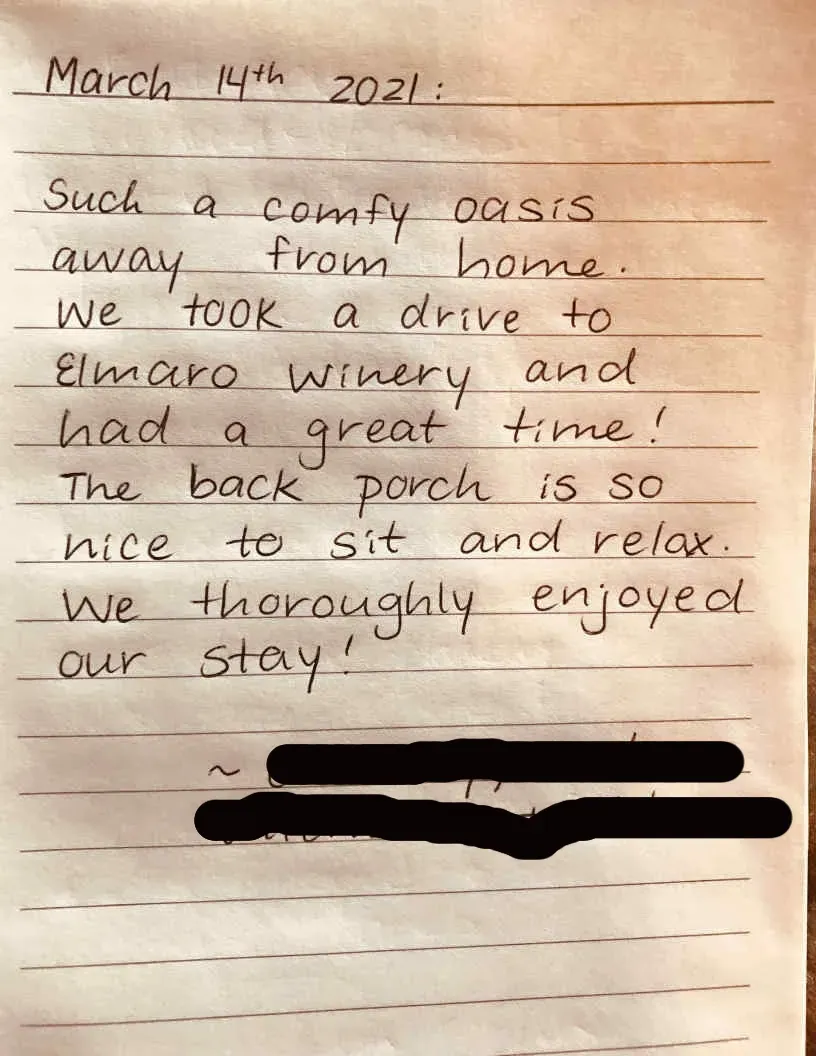 March 14th 2021:
Such a comfy oasis
away from home.
We took a drive to
Elmaro Winery and
had a great time!
The back porch is so
nice to sit and relax.
We thoroughly enjoyed
our stay!
~